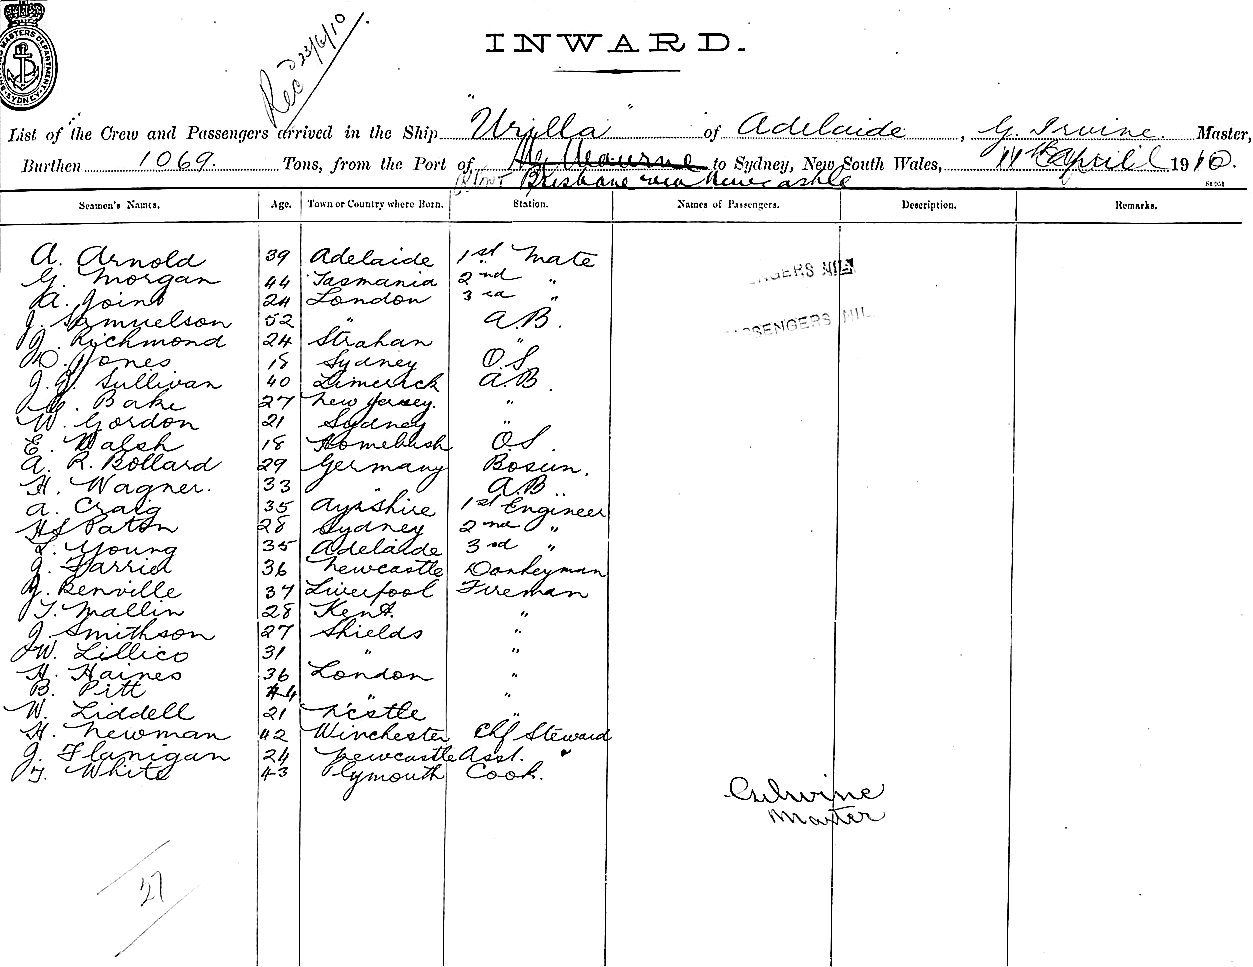 Rec'd 23/6/10
INWARD.
List of the Crew and Passengers arrived in the Ship "Urilla" of Adelaide, G. Irvine Master,
Burthen 1069. Tons, from the Port of Melbourne to Sydney, New South Wales, 11th April 1910.
Brisbane via Newcastle
Seamen's Names. Age. Town or Country where Born. Station. Names of Passengers. Description. Remarks.
A. Arnold 39 Adelaide 1st Mate
G. Morgan 44 Tasmania 2nd "
A. Joint 24 London 3rd "
J. Samuelson 52 " A.B.
J. Richmond 24 Strahan "
D. Jones 18 Sydney O.S.
J. J. Sullivan 40 Limerick A.B.
Bake 27 New Jersey. "
W. Gordon 21 Sydney "
E. Walsh 18 Homebush O.S.
A. R. Bollard 29 Germany Bosun.
H. Wagner. 33 " A.B.
A. Craig 35 Ayrshire 1st Engineer
HS Paton 28 Sydney 2nd "
L. Young 35 Adelaide 3rd "
J. Farrid 36 Newcastle Donkeyman
J. Benville 37 Liverpool Fireman
T. Mallin 28 Kent. "
J. Smithson 27 Shields "
W. Lillico 31 " "
H. Haines 36 London "
B. Pitt 44 " "
W. Liddell 21 N'castle "
H. Newman 42 Winchester Chf Steward
J. Flanigan 24 Newcastle Asst. "
F. White 43 Plymouth Cook.
PASSENGERS NIL
PASSENGERS NIL
GIrvine
Master
27